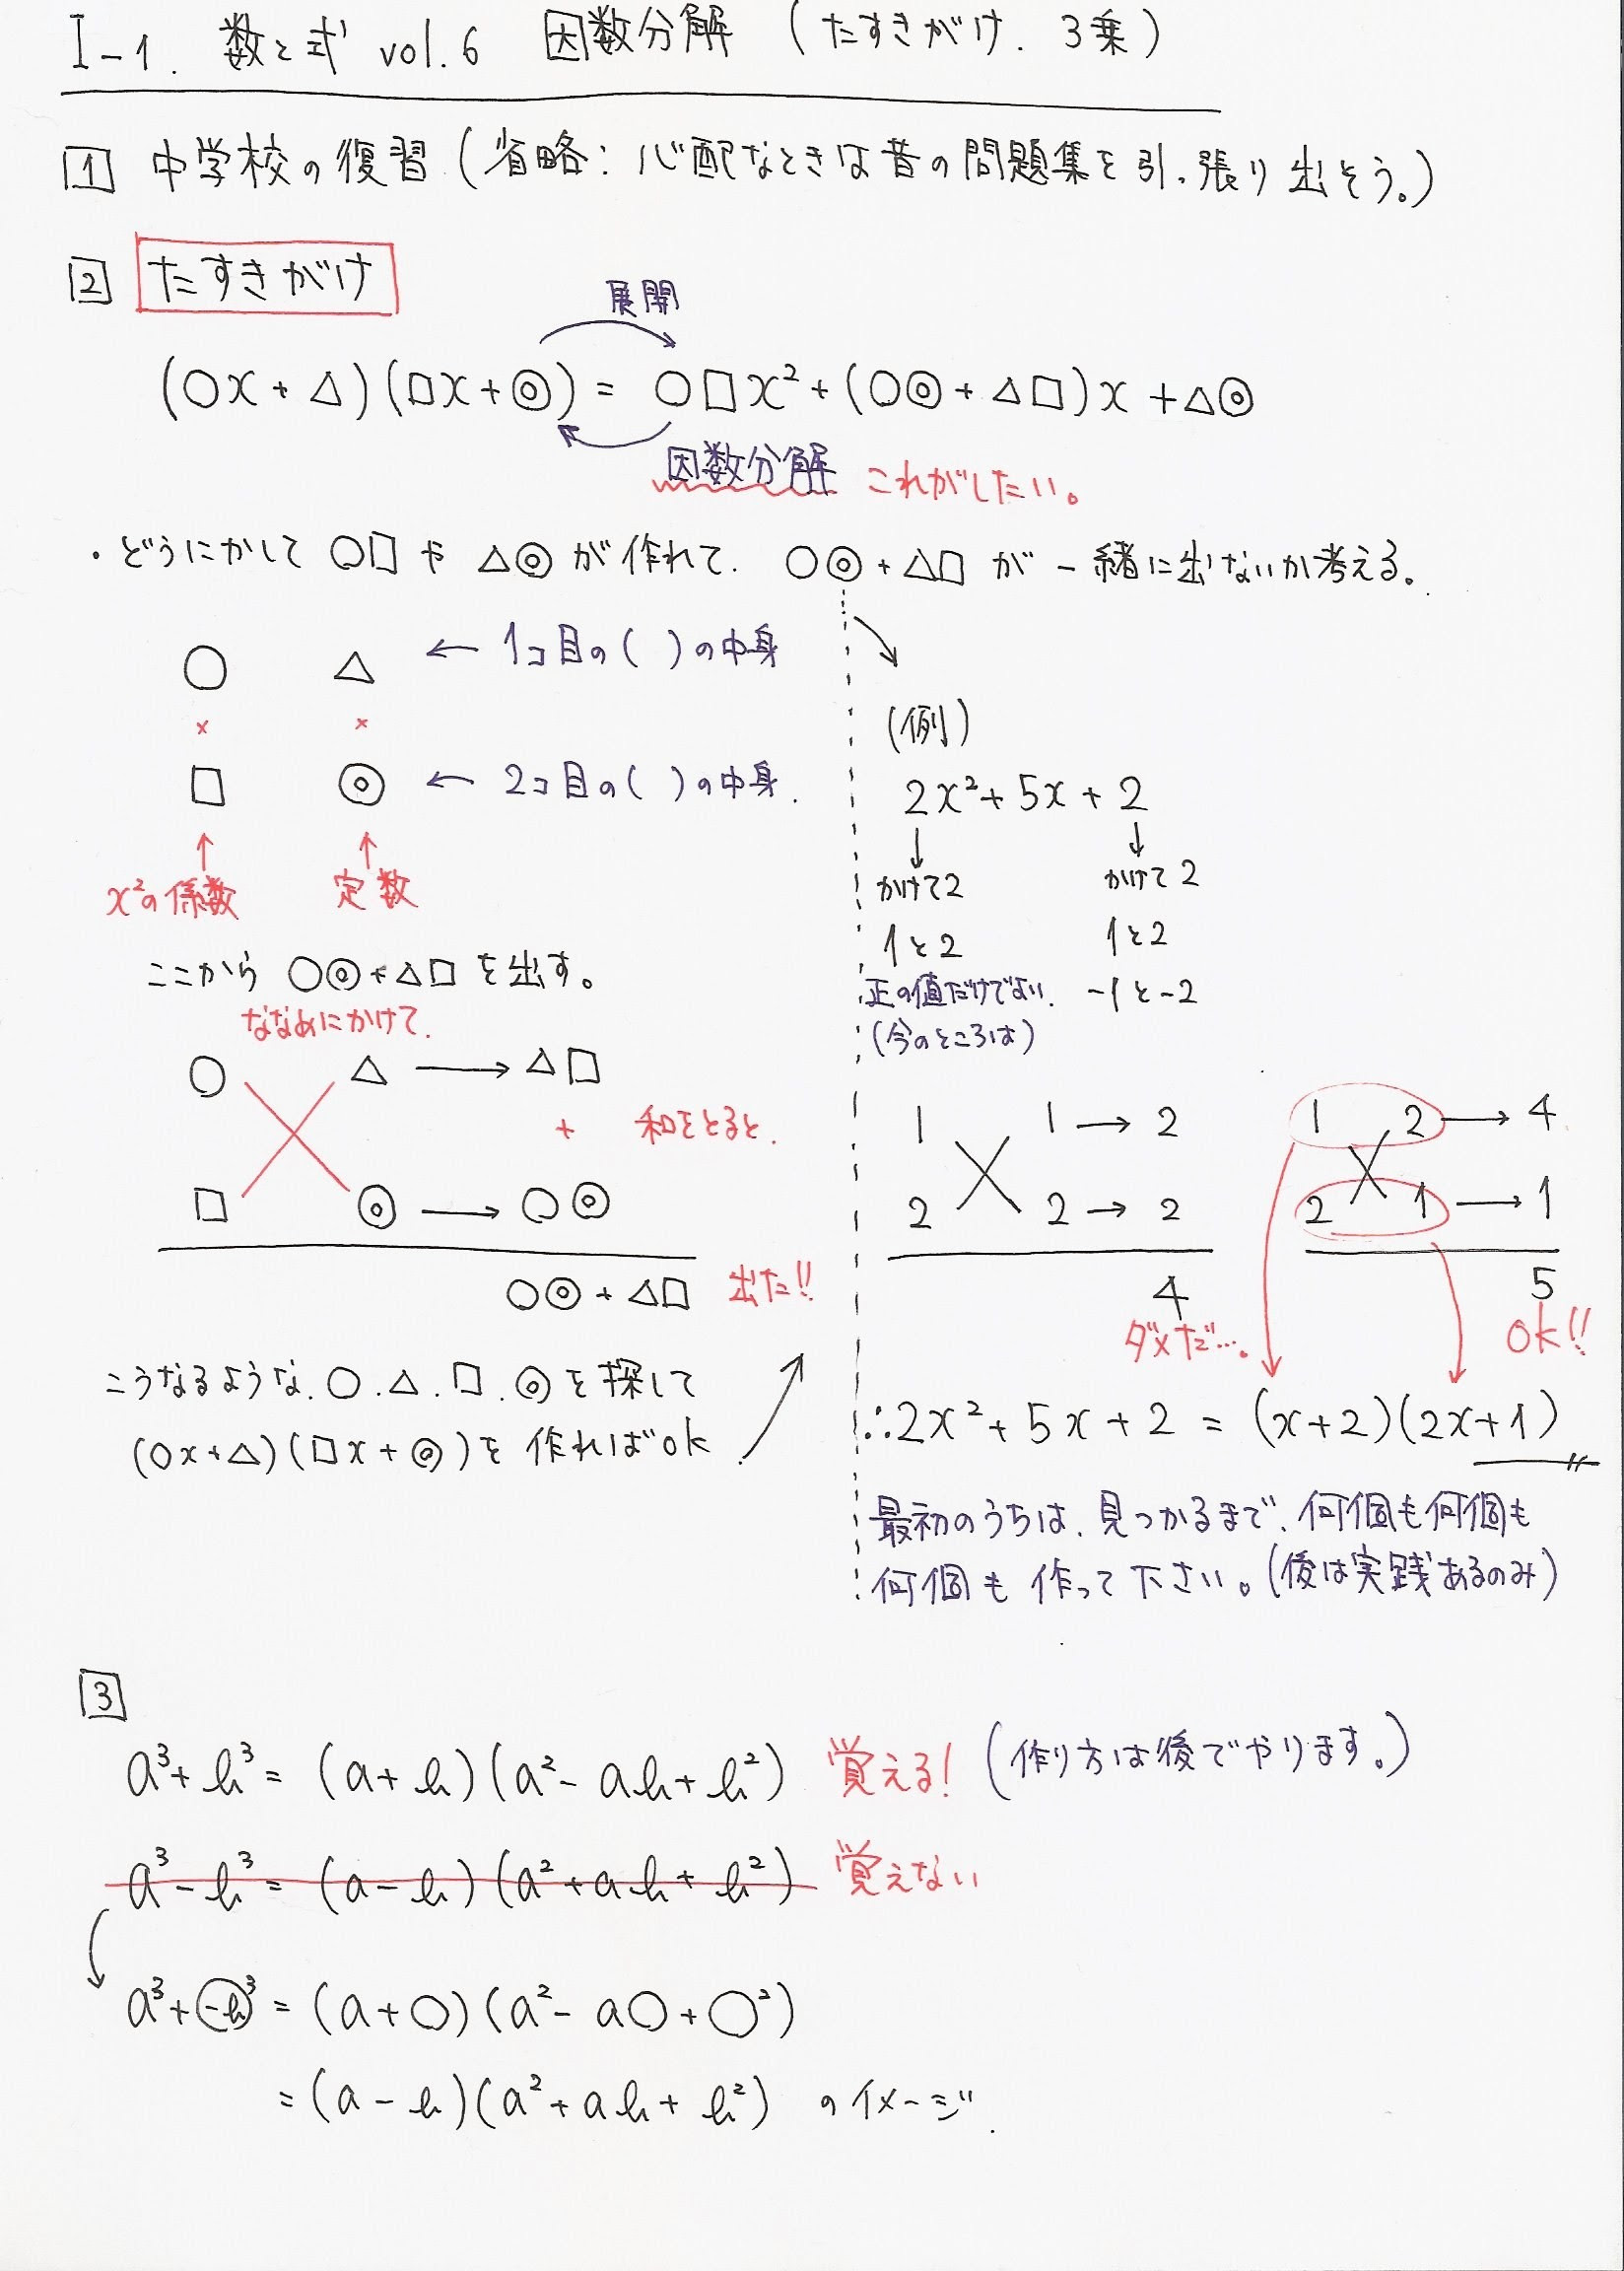 I-1. 数と式 vol.6 因数分解 (たすきがけ. 3乗)
1 中学校の復習 (省略: 心配なときは昔の問題集を引っ張り出そう。)
2 たすきがけ
展開
(○x + △)(□x + ◎) = ○□x² + (○◎ + △□)x + △◎
因数分解 これがしたい。
・どうにかして ○□ や △◎ が作れて. ○◎ + △□ が一緒に出ないか考える。
○ △ ← 1コ目の( )の中身
× ×
□ ◎ ← 2コ目の( )の中身.
↑ ↑
x²の係数 定数
ここから ○◎ + △□ を出す。
ななめにかけて.
○ △ → △□
+ 和をとると.
□ ◎ → ○◎
○◎ + △□ 出た!!
こうなるような. ○. △. □. ◎を探して
(○x + △)(□x + ◎)を作ればok
(例)
2x² + 5x + 2
↓ ↓
かけて2 かけて2
1と2 1と2
正の値だけでよい. -1と-2
(今のところは)
1 1 → 2
2 2 → 2
4
ダメだ…。
1 2 → 4
2 1 → 1
5
ok!!
∴2x² + 5x + 2 = (x+2)(2x+1)
最初のうちは、見つかるまで、何個も何個も
何個も作って下さい。(後は実践あるのみ)
3
a³ + b³ = (a + b)(a² - ab + b²) 覚える! (作り方は後でやります。)
a³ - b³ = (a - b)(a² + ab + b²) 覚えない
a³ + (-b)³ = (a + ○)(a² - a○ + ○²)
= (a - b)(a² + ab + b²) のイメージ.